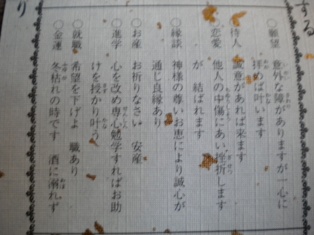 する
○願望 意外な障がありますが一心に
拝めば叶います
○待人 誠意があれば来ます
○恋愛 他人の中傷にあい挫折します
が 結ばれます
○縁談 神様の尊いお恵により誠心が
通じ良縁あり
○お産 お祈りなさい 安産
○進学 心を改め専心勉学すればお助
けを授かり叶う
○就職 希望を下げよ 職あり
○金運 冬枯れの時です 酒に溺れず
り